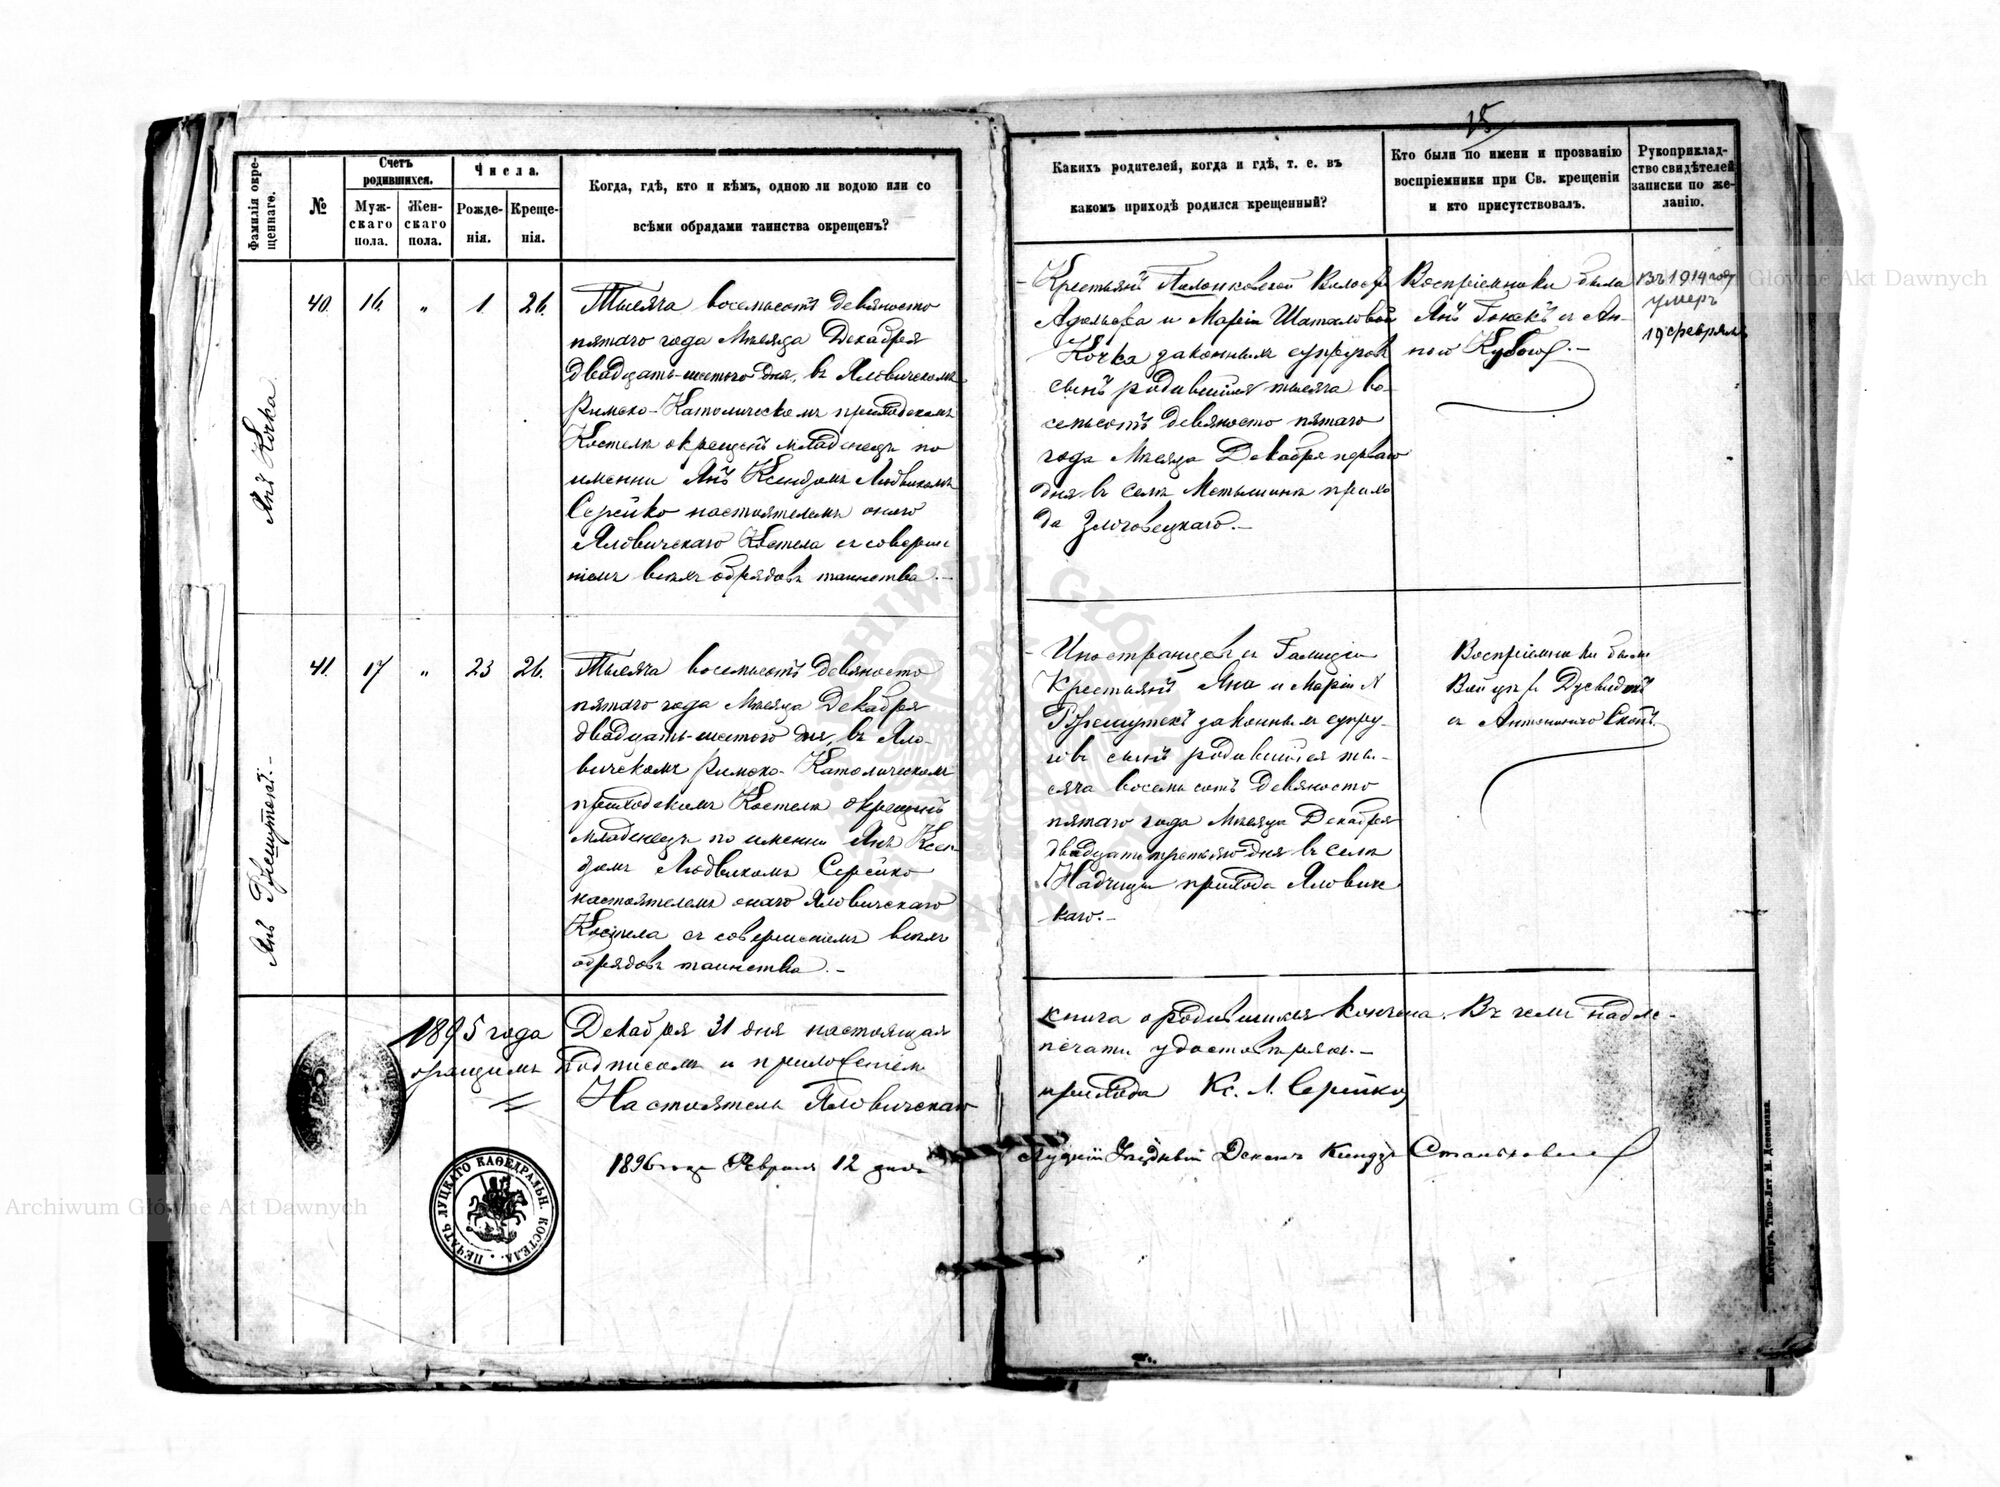 15
Фамилія окре-
щеннаго.
№
Счетъ
родившихся.
Муж-
скаго
пола.
Жен-
скаго
пола.
Числа.
Рожде-
нія.
Креще-
нія.
Когда, гдѣ, кто и кѣмъ, одною ли водою или со
всѣми обрядами таинства окрещенъ?
Каких родителей, когда и гдѣ, т. е. въ
какомъ приходѣ родился крещенный?
Кто были по имени и прозванію
воспріемники при Св. крещеніи
и кто присутствовалъ.
Рукоприклад-
ство свидѣтелей
записки по же-
ланію.
Янъ Кочка
40
16.
„
1
26.
Тысяча восемьсотъ девяносто
пятаго года Мѣсяца Декабря
двадцать-шестого дня, въ Яловичскомъ
Римско-Католическомъ приходскомъ
Костелѣ окрещенъ младенецъ по
имени Янъ Ксендзомъ Людвикомъ
Серейко настоятелемъ онаго
Яловичскаго Костела съ соверше-
ніемъ всѣхъ обрядовъ таинства.—
Крестьянъ
и Маріи Шаталовой
Кочка законныхъ супруговъ
сынъ родившійся тысяча во-
семьсотъ девяносто пятаго
года Мѣсяца Декабря перваго
дня въ селѣ прихо
да
Воспріемники были
Янъ съ Ан-
ною
Въ 1914 году
умеръ
19 февраля
Янъ Ржешутекъ.—
41.
17
„
23
26.
Тысяча восемьсотъ девяносто
пятаго года Мѣсяца Декабря
двадцать-шестого дня, въ Яло-
вичскомъ Римско-Католическомъ
приходскомъ Костелѣ окрещенъ
младенецъ по имени Янъ Ксен-
дзомъ Людвикомъ Серейко
настоятелемъ онаго Яловичскаго
Костела съ совершеніемъ всѣхъ
обрядовъ таинства.—
Иностранцевъ съ Галиціи
Крестьянъ Яна и Маріи
Ржешутекъ законныхъ супру-
говъ сынъ родившійся ты-
сяча восемьсотъ девяносто
пятаго года Мѣсяца Декабря
двадцать третьяго дня въ селѣ
Надчицы прихода Яловичс
каго.—
Воспріемники были

съ Антониною
1895 года Декабря 31 дня настоящая книга о родившихся кончена. Въ чемъ надле-
жащимъ подписомъ и приложеніемъ печати удостовѣряю.—
Настоятель Яловичскаго прихода Кс. Л. Серейко
1896 года Февраля 12 дня Луцкій Уѣздный Деканъ Ксендзъ
ПЕЧАТЬ ЛУЦКАГО КАѲЕДРАЛЬН. КОСТЕЛА.
Archiwum Główne Akt Dawnych
Archiwum Główne Akt Dawnych